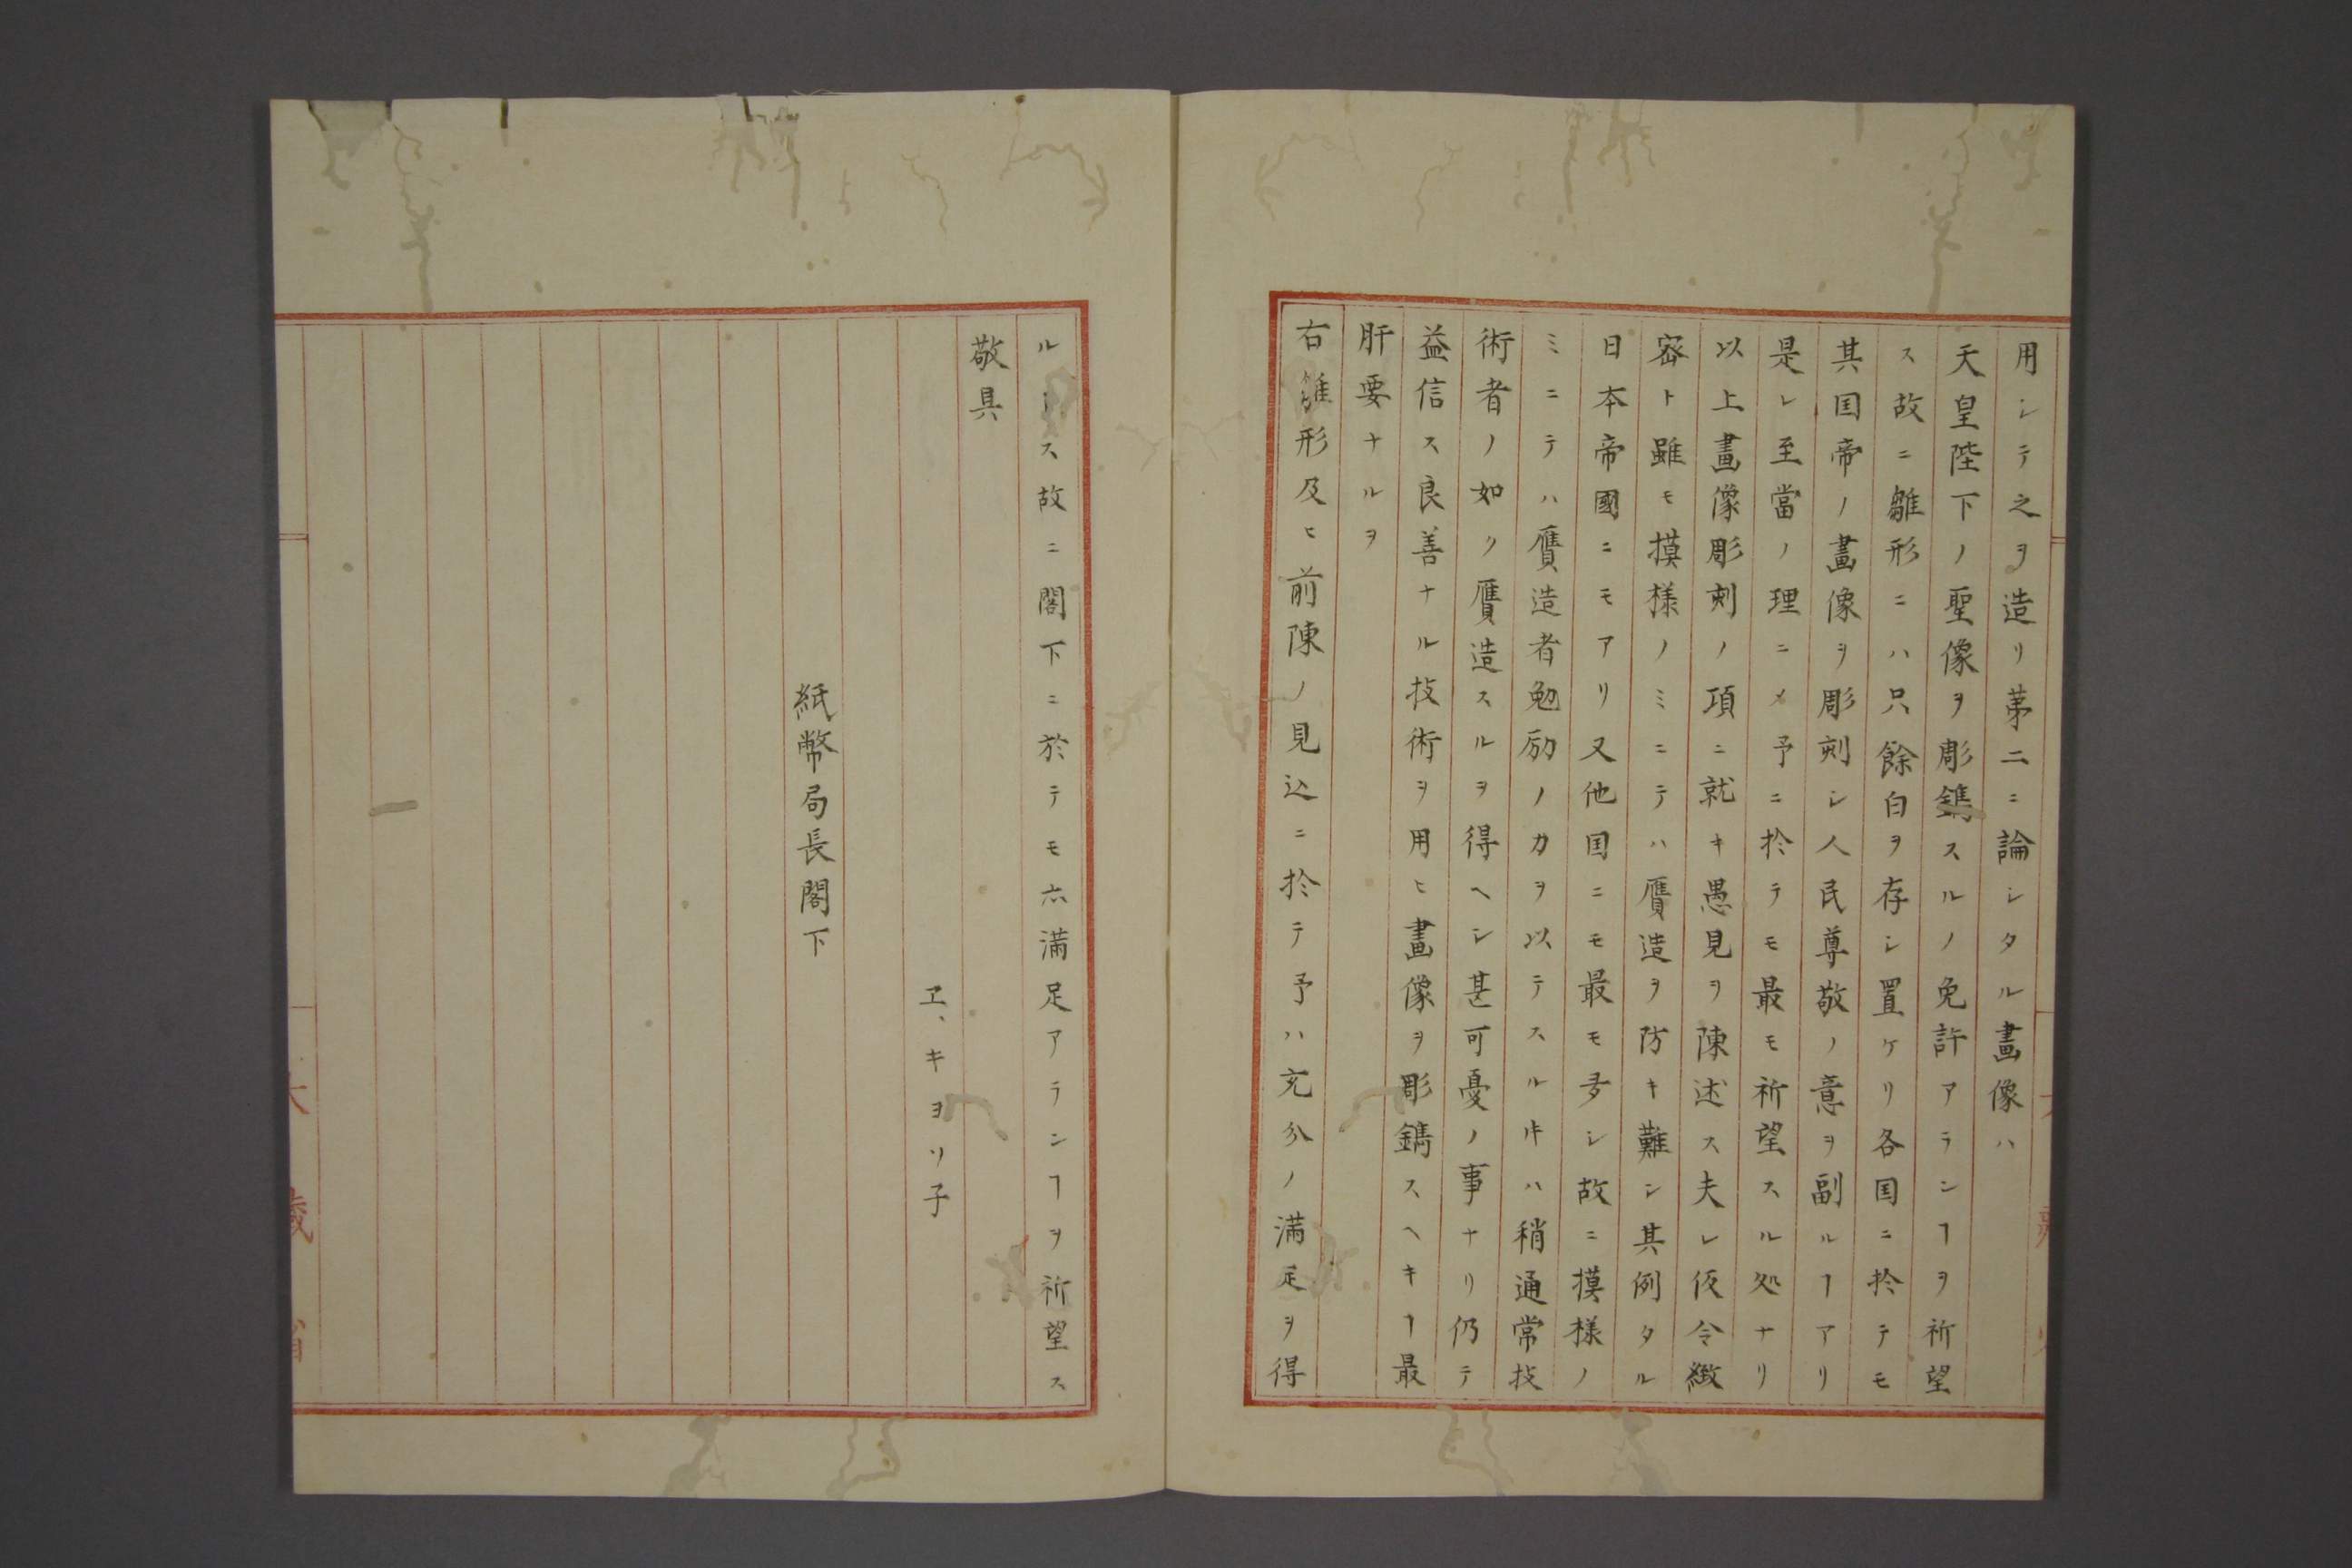 用シテ之ヲ造リ第二ニ論シタル畫像ハ
天皇陛下ノ聖像ヲ彫鐫スルノ免許アランヿヲ祈望
ス故ニ雛形ニハ只餘白ヲ存シ置ケリ各国ニ於テモ
其国帝ノ畫像ヲ彫刻シ人民尊敬ノ意ヲ副ルヿアリ
是レ至當ノ理ニメ予ニ於テモ最モ祈望スル処ナリ
以上畫像彫刻ノ項ニ就キ愚見ヲ陳述ス夫レ仮令緻
密ト雖モ摸様ノミニテハ贋造ヲ防キ難シ其例タル
日本帝國ニモアリ又他国ニモ最モ多シ故ニ摸様ノ
ミニテハ贋造者勉励ノカヲ以テスル𪜈ハ稍通常技
術者ノ如ク贋造スルヲ得ヘシ甚可憂ノ事ナリ仍テ
益信ス良善ナル技術ヲ用ヒ畫像ヲ彫鐫スヘキヿ最
肝要ナルヲ
右雛形及ヒ前陳ノ見込ニ於テ予ハ充分ノ満足ヲ得
ルトス故ニ閣下ニ於テモ亦満足アランヿヲ祈望ス
敬具
エ、キヨソ子
紙幣局長閣下
大蔵省